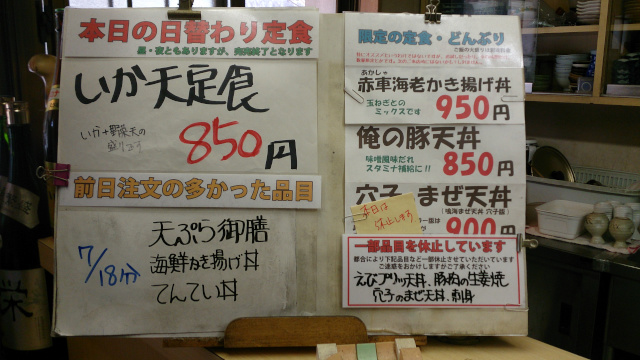 本日の日替わり定食
昼・夜ともありますが、完売終了となります
いか天定食
いか+野菜天の
盛り合わせ
850円
前日注文の多かった品目
7/18分
天ぷら御膳
海鮮ねぎ揚げ丼
てんてい丼
限定の定食・どんぶり
あかしゃ
赤車海老かき揚げ丼
玉ねぎとの
ミックスです
950円
俺の豚天丼
味噌風味だれ
スタミナ補給に!!
850円
穴子 まぜ天丼
本日は
休止します
900円
一部品目を休止しています
都合により下記品目など一部休止させていただいています
ご迷惑をおかけしますがご了承ください
えびプリッ天丼、豚肉の生姜焼
穴子のまぜ天丼、刺身